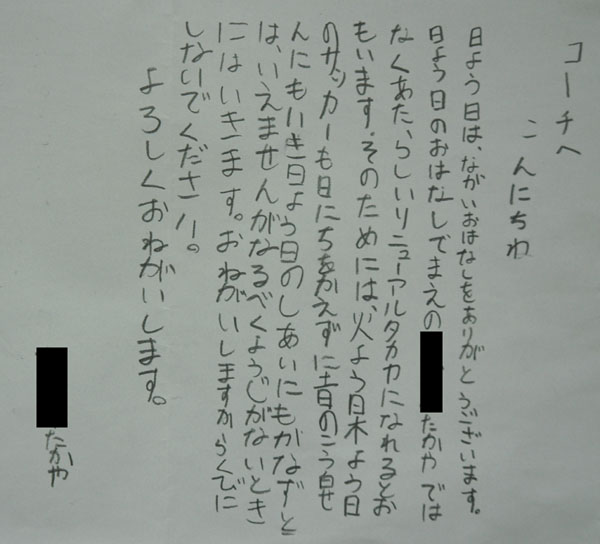 コーチへ
こんにちわ
日よう日は、ながいおはなしをありがとうございます。
日よう日のおはなしでまえの
たかやでは
なくあた、らしいリニューアルタカヤになれるとお
もいます。そのためには、火よう日木よう日
のサッカーも日にちをかえずに のこう白せ
んにもいき日よう日のしあいにもかなずと
は、いえませんがなるべくようじがないとき
にはいきます。おねがいしますからくびに
しないでください。
よろしくおねがいします。
たかや